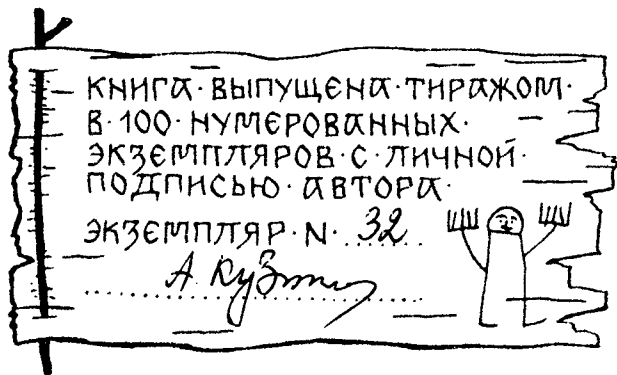 КНИГА·ВЫПУЩЕНА·ТИРАЖОМ·
В·100·НУМЕРОВАННЫХ·
ЭКЗЕМПЛЯРОВ·С·ЛИЧНОЙ·
ПОДПИСЬЮ·АВТОРА·
ЭКЗЕМПЛЯР·N·32